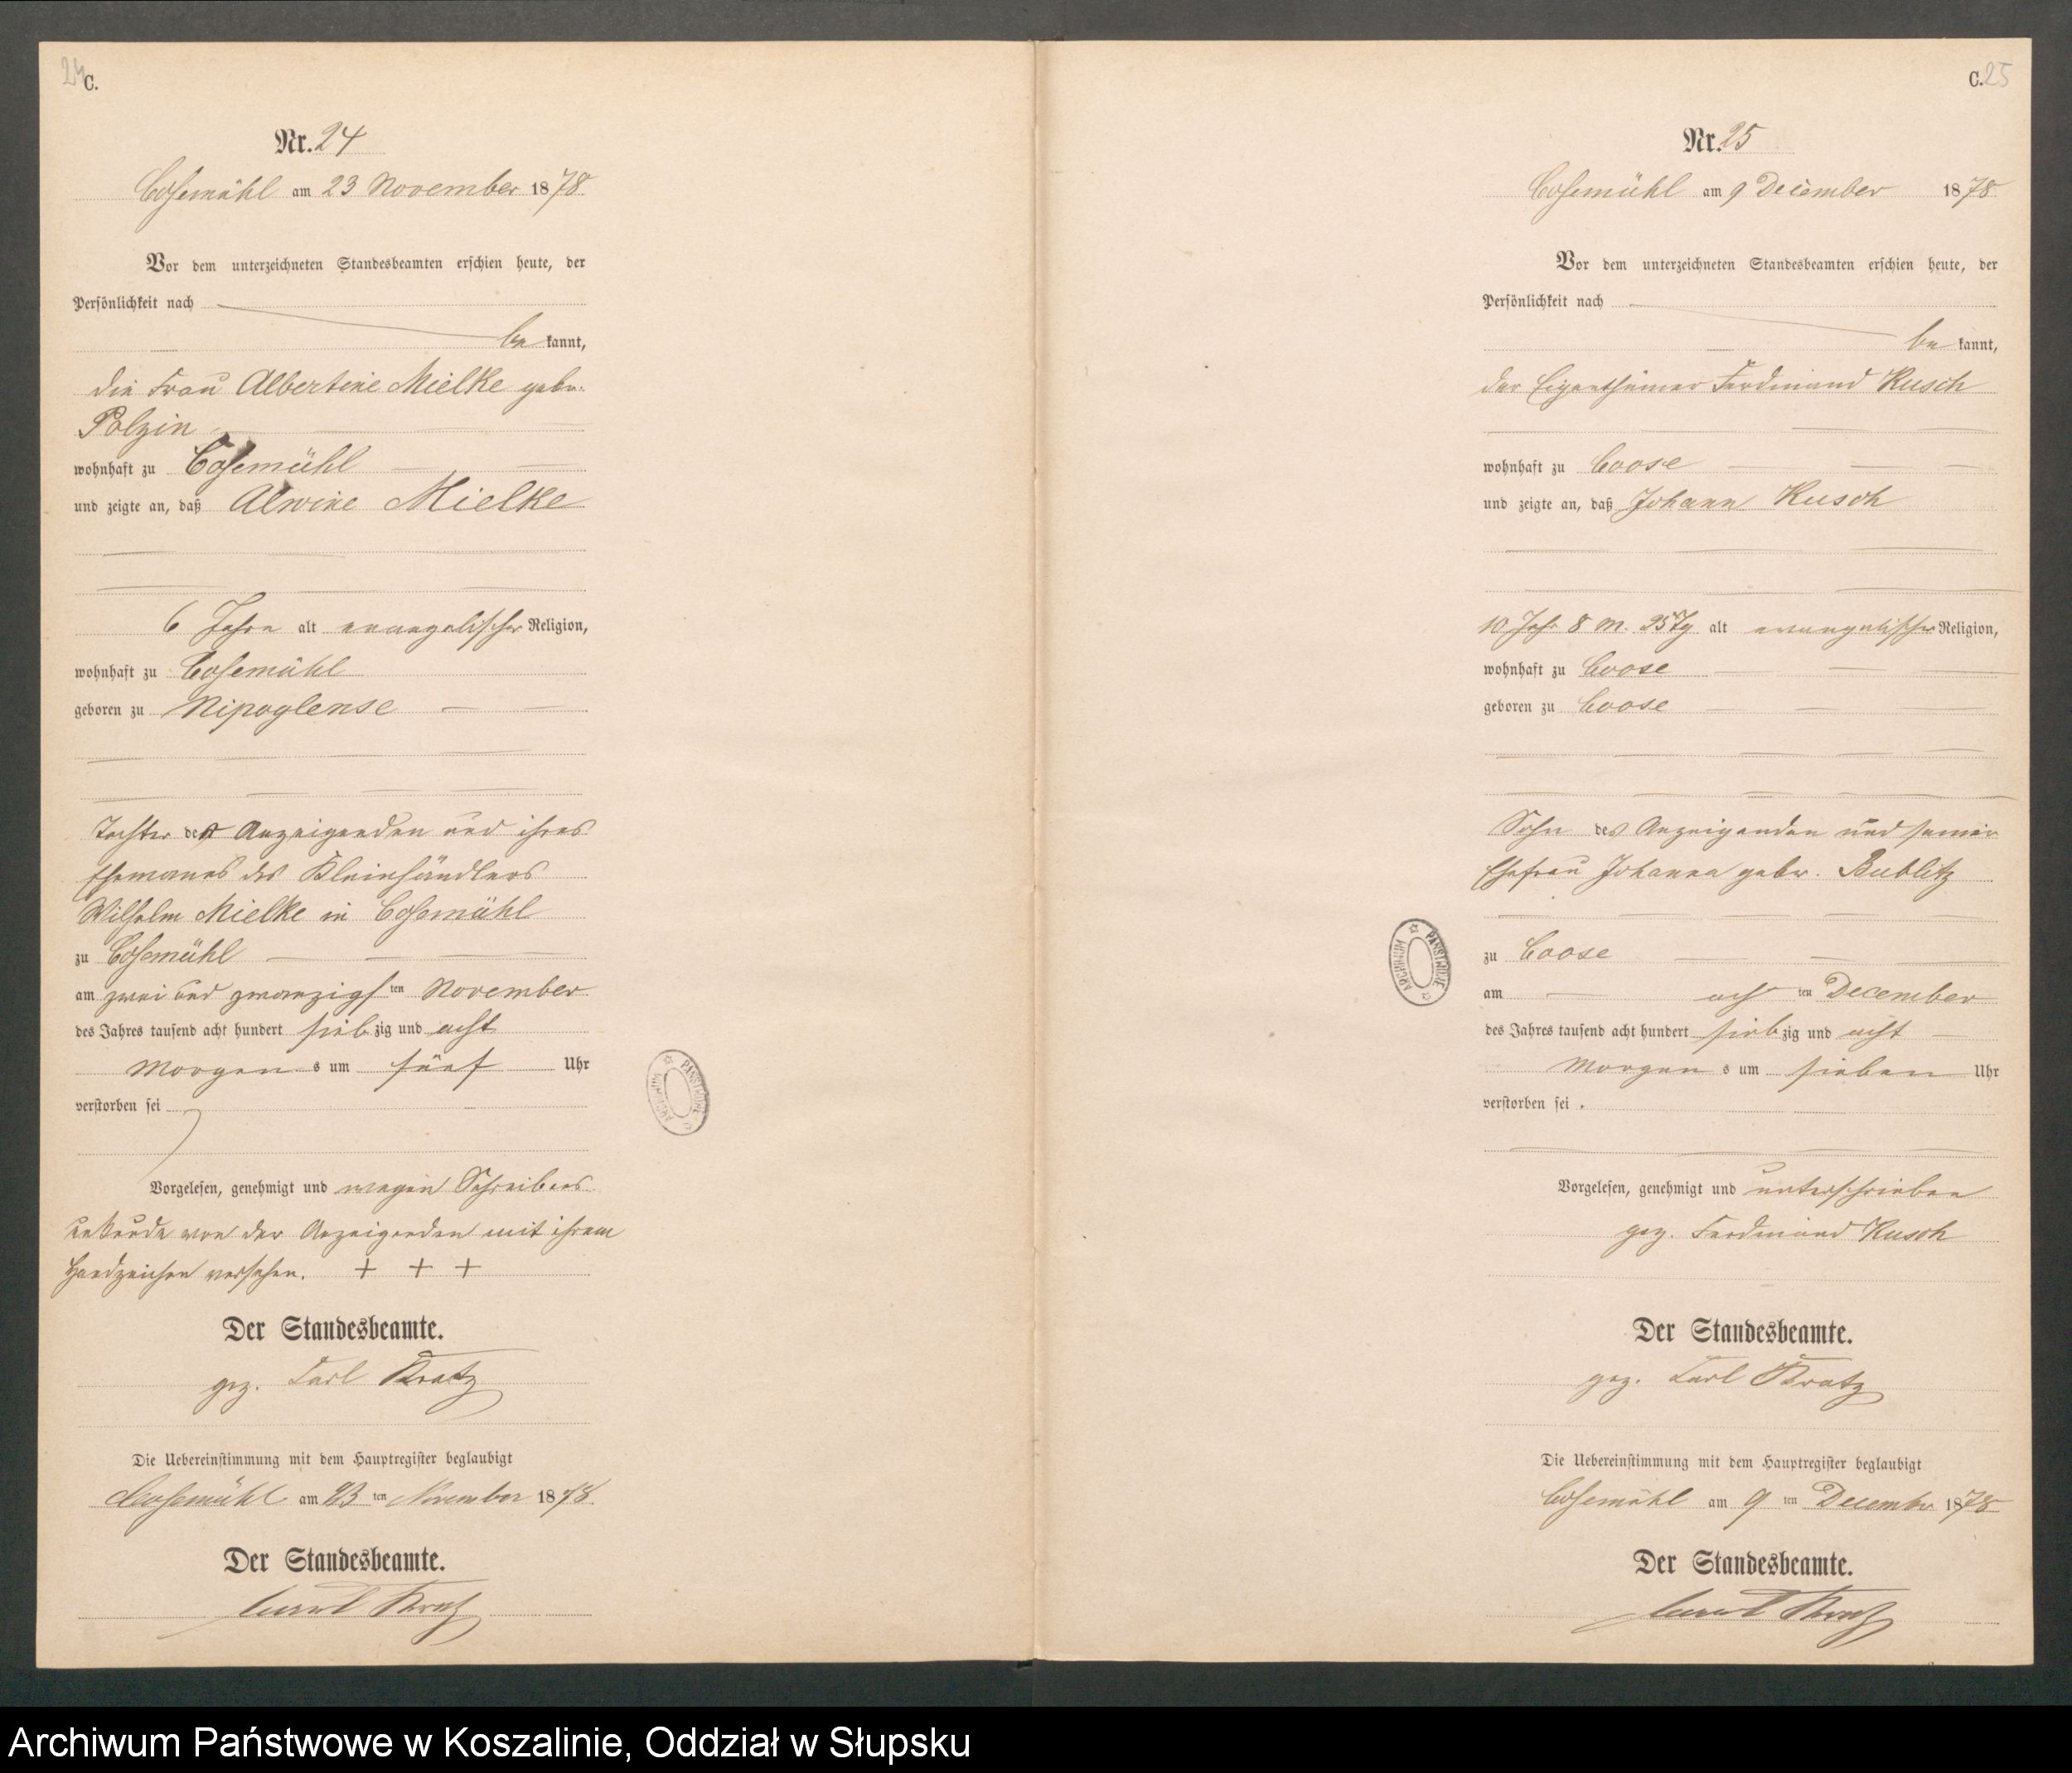 24
C.
Nr. 24
Cosemühl am 23 November 1878
Vor dem unterzeichneten Standesbeamten erschien heute, der
Persönlichkeit nach
be kannt,
die Frau Albertine Mielke gebr.
Polzin
wohnhaft zu Cosemühl
und zeigte an, daß Alwine Mielke
6 Jahre alt evangelischer Religion,
wohnhaft zu Cosemühl
geboren zu Nipoglense
Tochter der Anzeigenden und ihres
Ehemanns des Kleinhändlers
Wilhelm Mielke in Cosemühl
zu Cosemühl
am zwei und zwanzigsten November
des Jahres tausend acht hundert siebzig und acht
Morgens um fünf Uhr
verstorben sei
Vorgelesen, genehmigt und wegen Schreibens
unkunde von der Anzeigenden mit ihrem
Handzeichen versehen. + + +
Der Standesbeamte.
gez. Carl Kratz
Die Uebereinstimmung mit dem Hauptregister beglaubigt
Cosemühl am 23 ten November 1878.
Der Standesbeamte.
Carl Kratz
ARCHIWUM PAŃSTWOWE
C. 25
Nr. 25
Cosemühl am 9 December 1878
Vor dem unterzeichneten Standesbeamten erschien heute, der
Persönlichkeit nach
be kannt,
der Eigenthümer Ferdinand Kusch
wohnhaft zu Coose
und zeigte an, daß Johann Kusch
10 Jahr 8 M. 25 Tg alt evangelischer Religion,
wohnhaft zu Coose
geboren zu Coose
Sohn des Anzeigenden und seiner
Ehefrau Johanna gebr. Bublitz
zu Coose
am acht ten December
des Jahres tausend acht hundert siebzig und acht
Morgens um sieben Uhr
verstorben sei.
Vorgelesen, genehmigt und unterschrieben
gez. Ferdinand Kusch
Der Standesbeamte.
gez. Carl Kratz
Die Uebereinstimmung mit dem Hauptregister beglaubigt
Cosemühl am 9 ten December 1878
Der Standesbeamte.
Carl Kratz
ARCHIWUM PAŃSTWOWE
Archiwum Państwowe w Koszalinie, Oddział w Słupsku